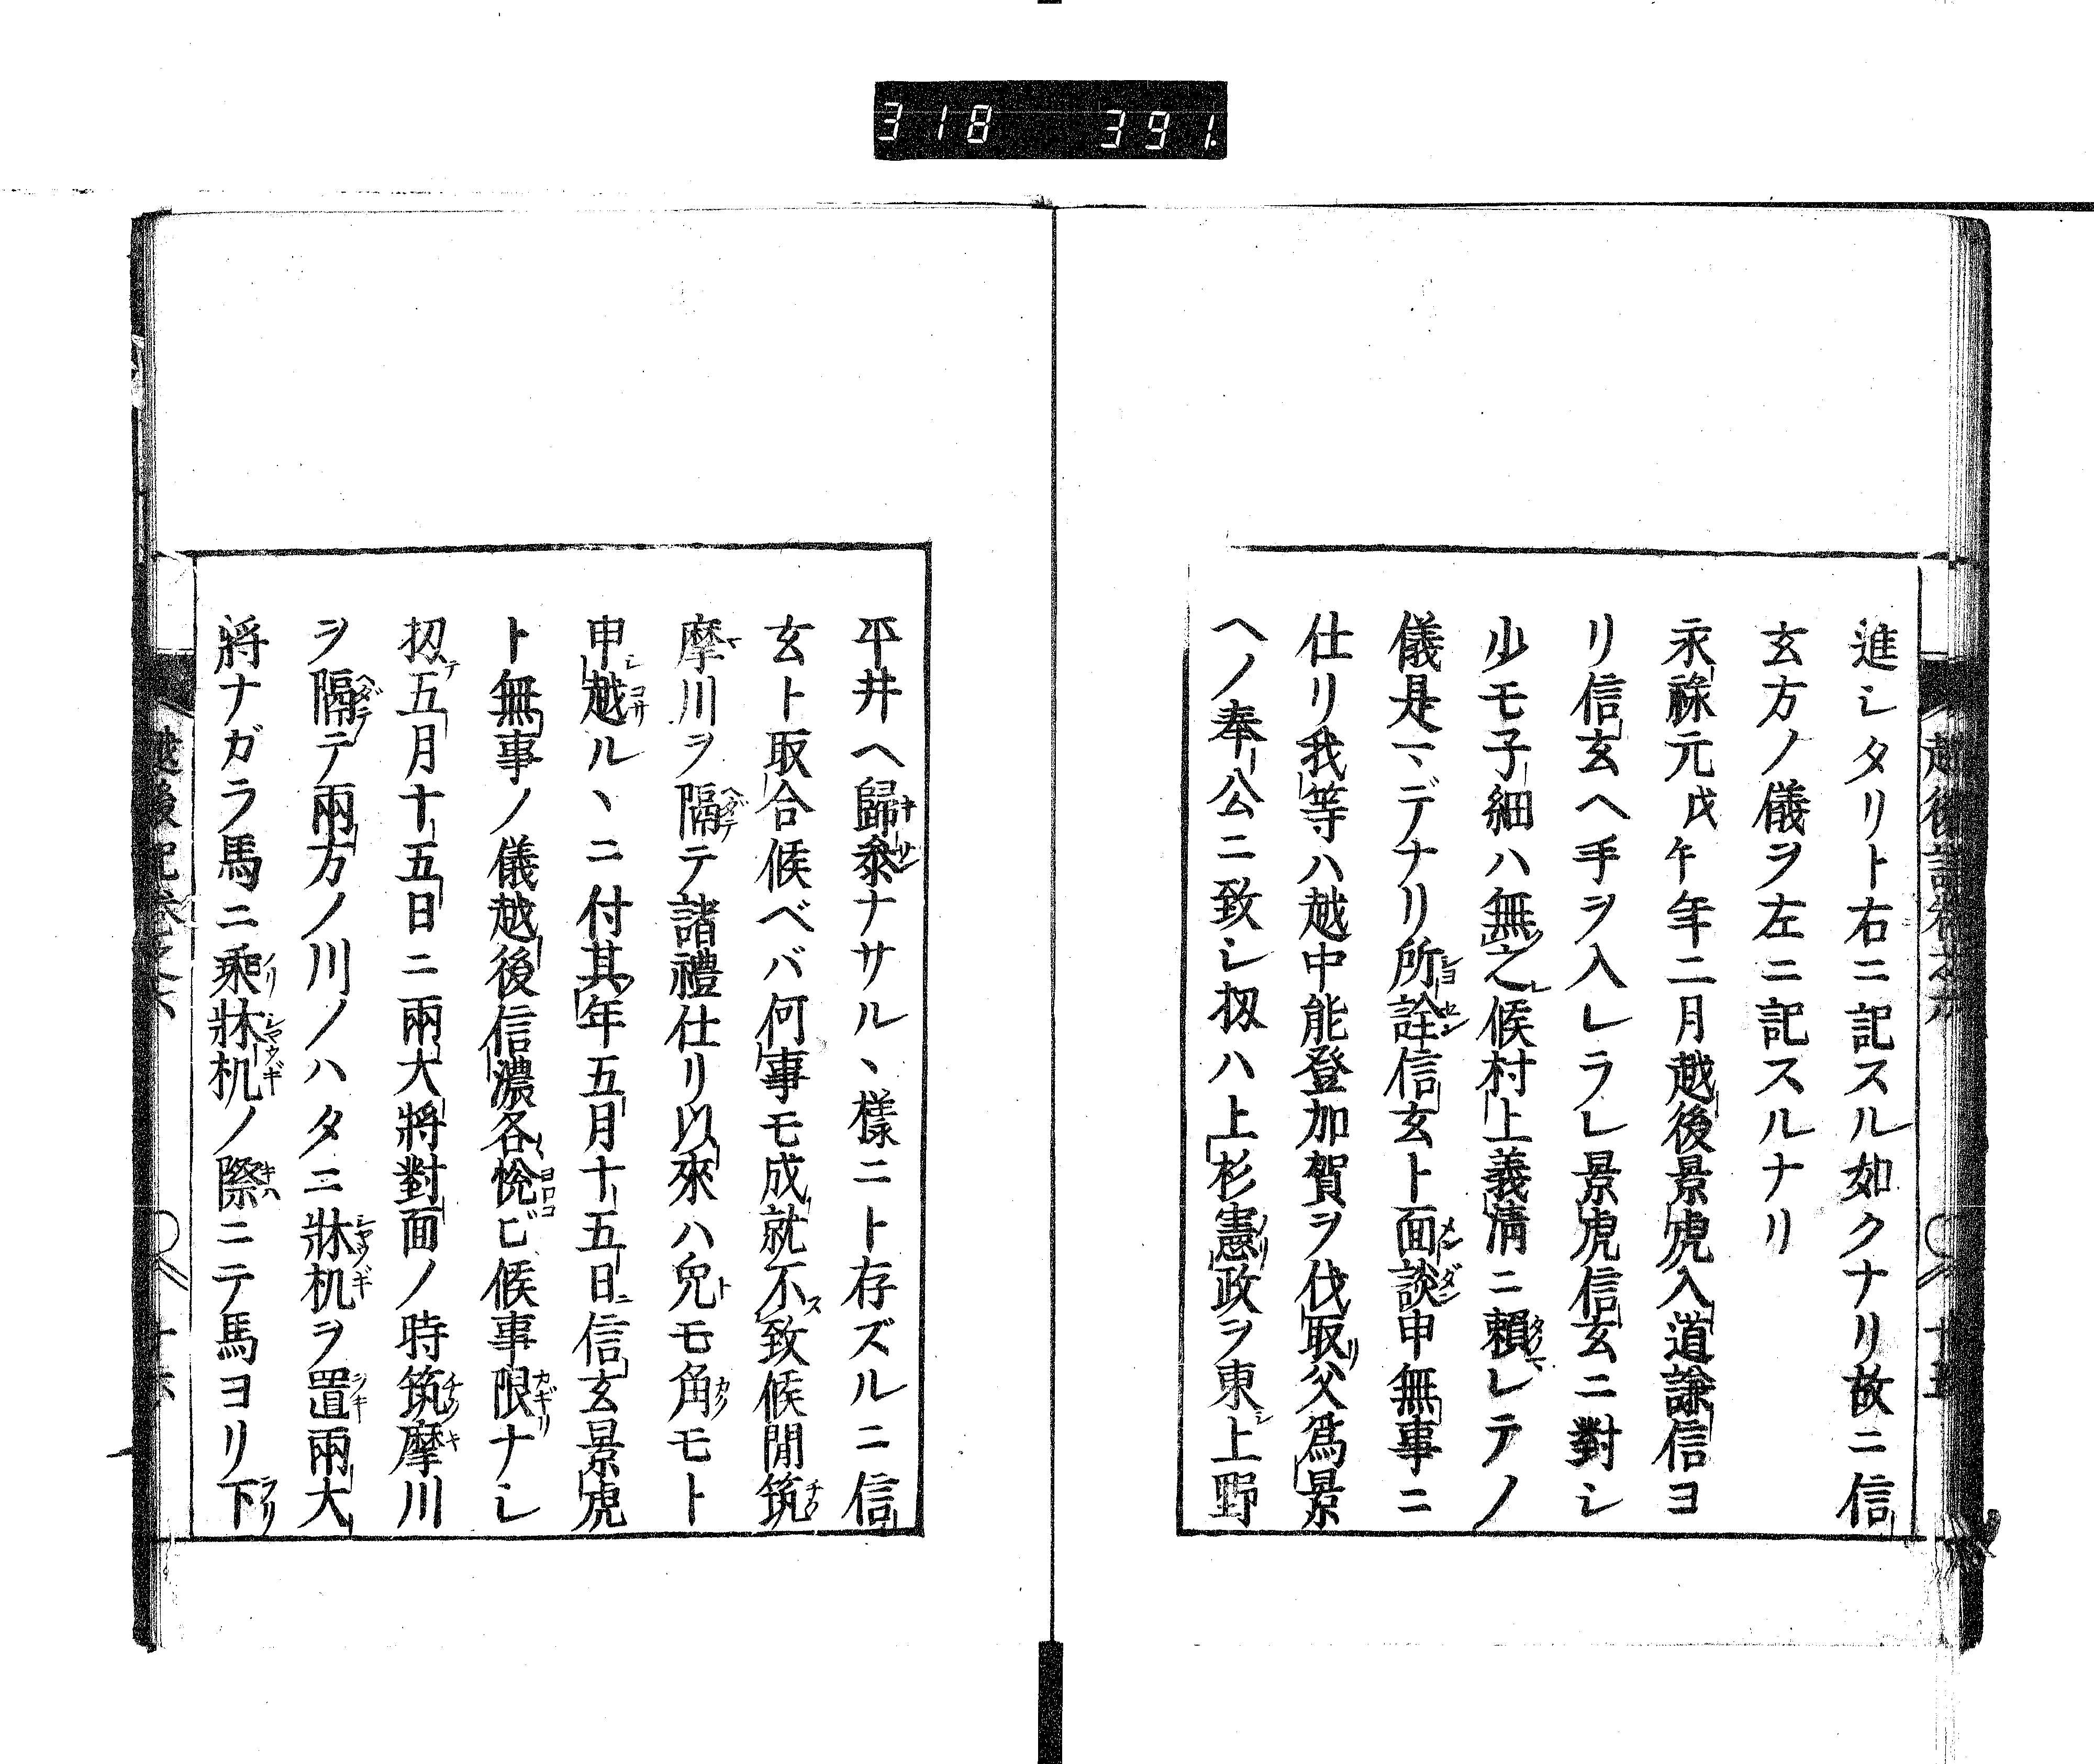 318 391
進シタリト右ニ記スル如クナリ故ニ信
玄方ノ儀ヲ左ニ記スルナリ
永祿元戊午年二月越後景虎入道謙信ヨ
リ信玄ヘ手ヲ入レラレ景虎信玄ニ對シ
少モ子細ハ無之候村上義淸ニ賴レテノ
儀是マデナリ所詮信玄ト面談申無事ニ
仕リ我等ハ越中能登加賀ヲ伐取父爲景
ヘノ奉公ニ致シ扨ハ上杉憲政ヲ東上野
平井ヘ歸參ナサルヽ樣ニト存ズルニ信
玄ト取合候ベバ何事モ成就不致候間筑
摩川ヲ隔テ諸禮仕リ以來ハ兎モ角モト
申越ルヽニ付其年五月十五日信玄景虎
ト無事ノ儀越後信濃各悅ビ候事限ナシ
扨五月十五日ニ兩大將對面ノ時筑摩川
ヲ隔テ兩方ノ川ノハタニ牀机ヲ置兩大
將ナガラ馬ニ乘牀机ノ際ニテ馬ヨリ下